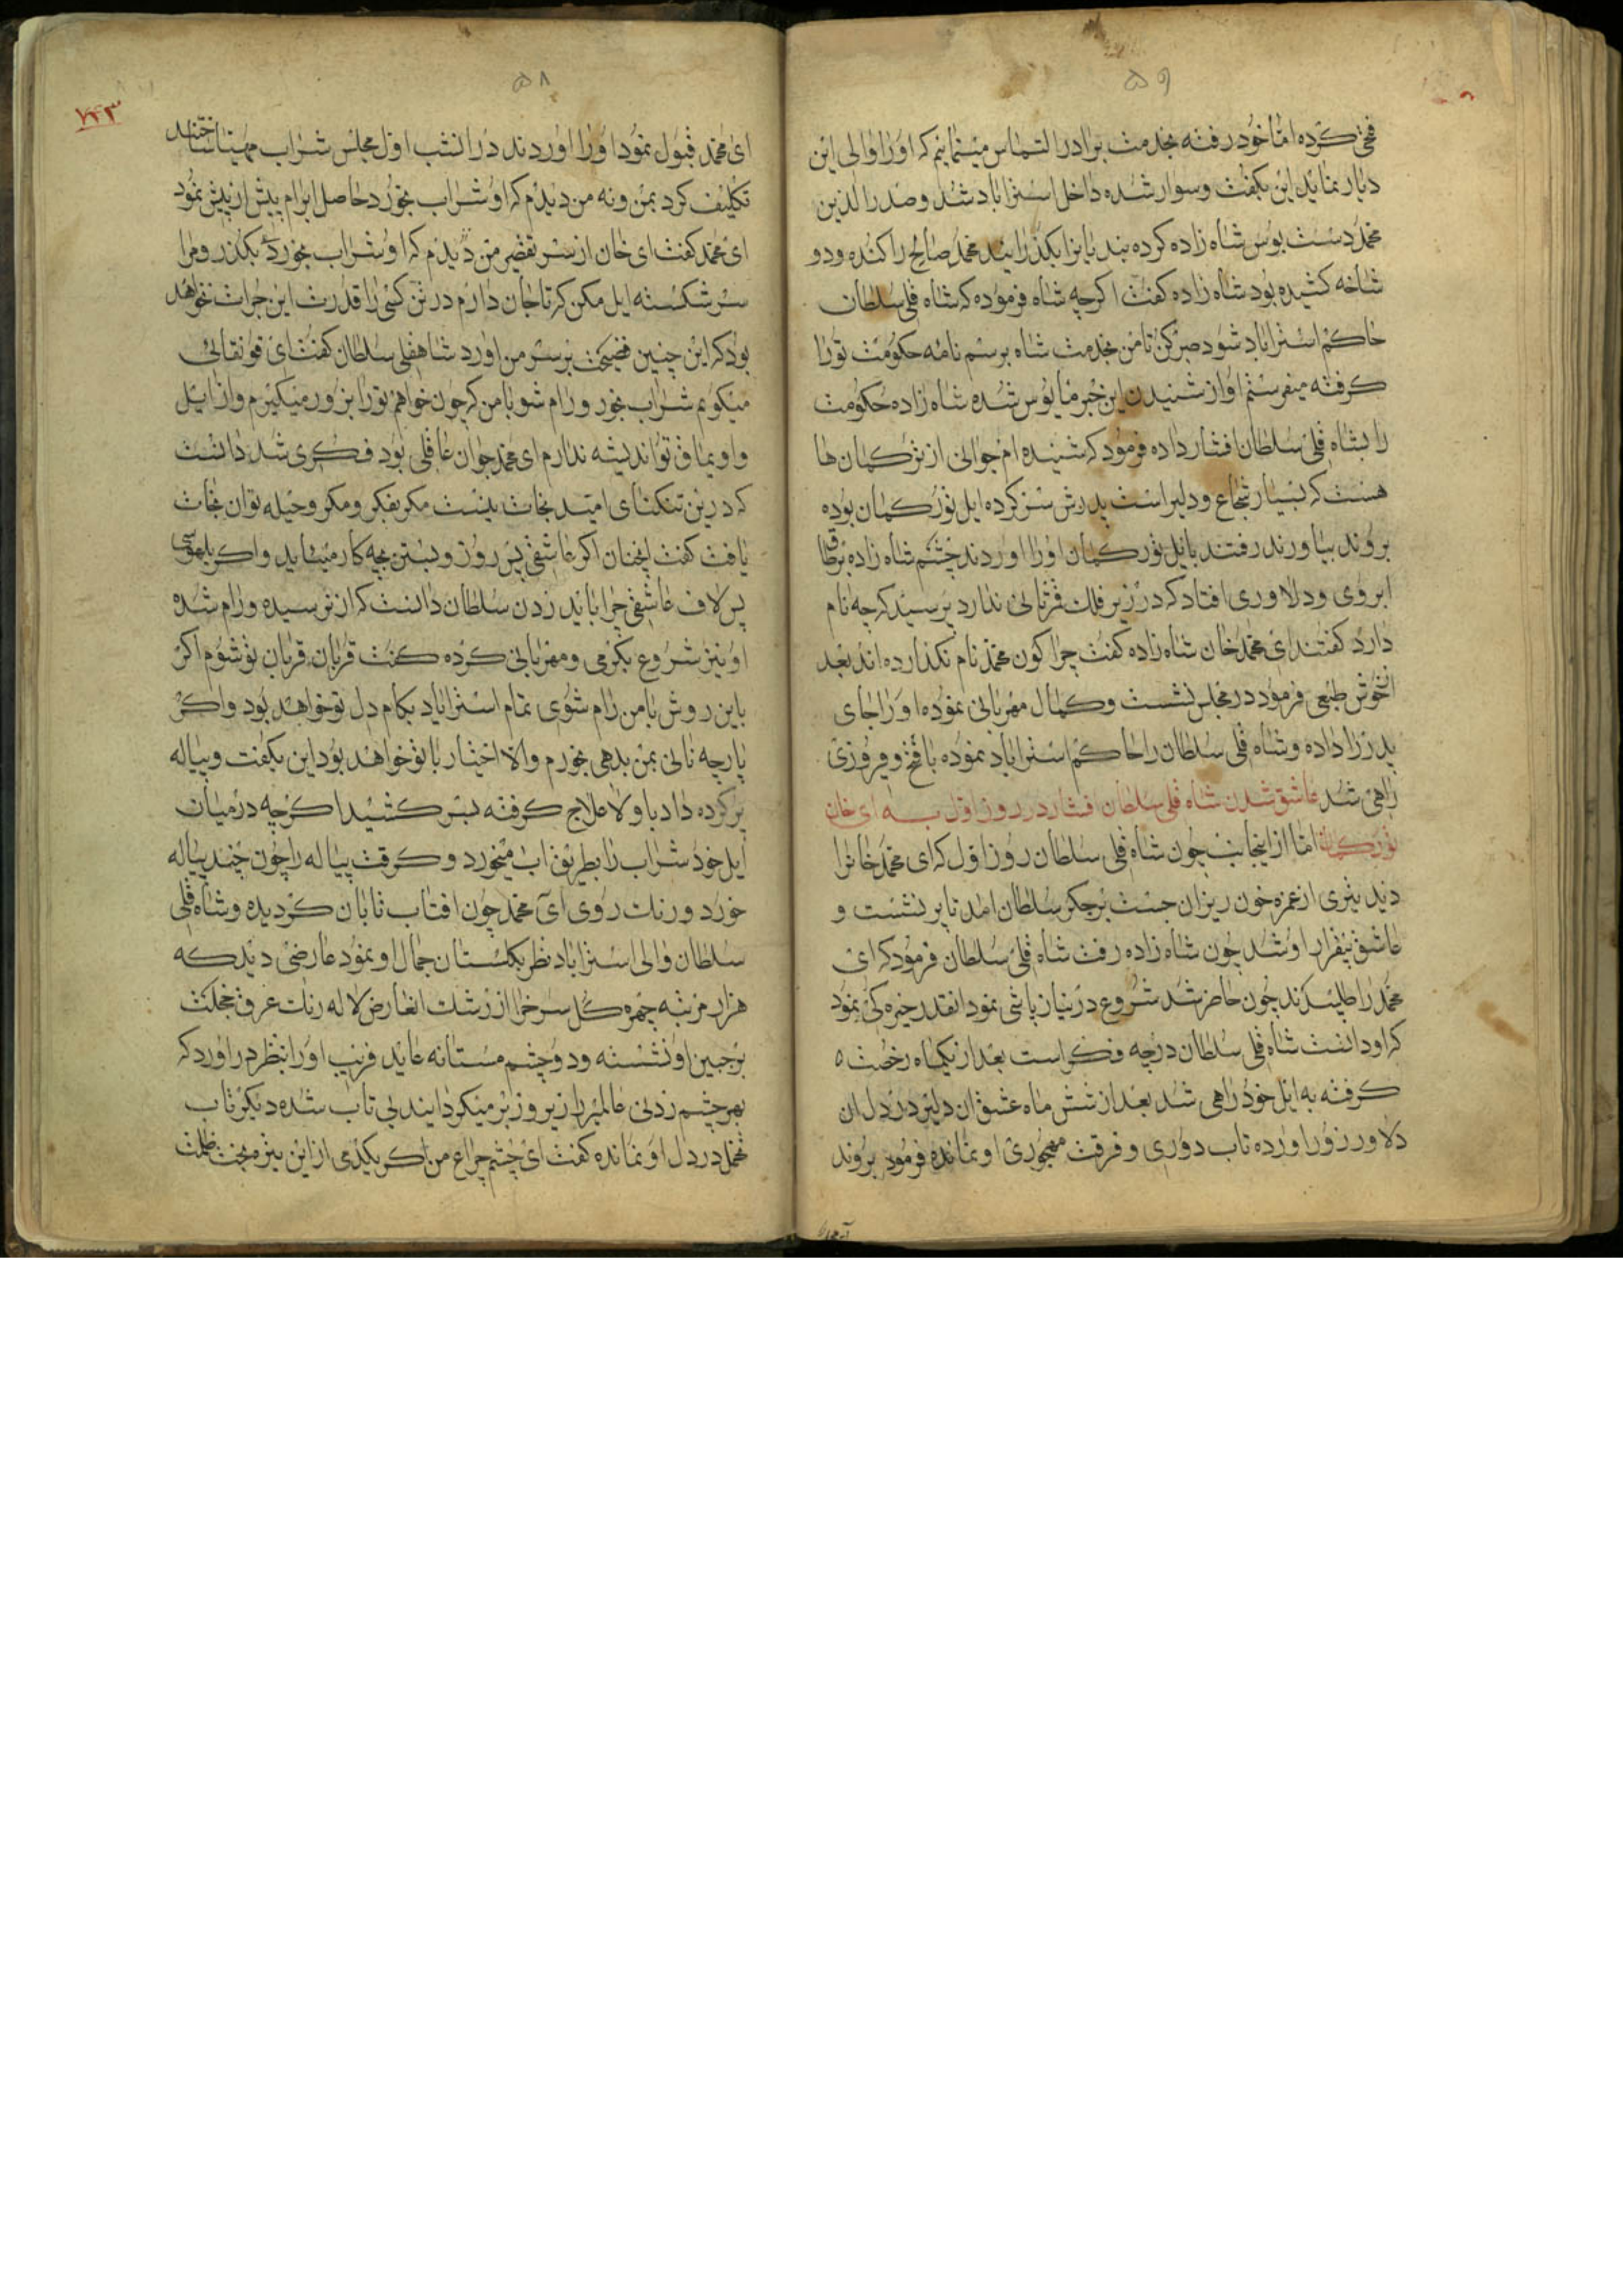 ۵۹
فتحی کرده اما خود رفته بخدمت برادر التماس مینمایم که او را والی این
دیار نماید این بکفت و سوار شده داخل استراباد شد و صدرالدین
محمد دست بوس شاه زاده کرده بندیانرا بکذرانیند محمد صالح را کنده و دو
شاخه کشیده بود شاه زاده کفت اکرچه شاه فرموده که شاه قلی سلطان
حاکم استراباد شود صبر کن تا من بخدمت شاه برسم نامه حکومت تو را
کرفته میفرستم او از شنیدن این خبر مایوس شده شاه زاده حکومت
را بشاه قلی سلطان افشار داده فرمود که شنیده ام جوانی از ترکمان ها
هست که بسیار شجاع و دلیر است پدرش سر کرده ایل تورکمان بوده
بروند بیاورند رفتند بایل تورکمان او را اوردند چشم شاه زاده بر طاق
ابروی و دلاوری افتاد که در زیر فلک قرنانی ندارد پرسید که چه نام
دارد کفتند ای محمد خان شاه زاده کفت چرا کون محمد نام نکذارده اند بعد
انخوش طبعی فرمود در مجلس نشست و کمال مهربانی نموده او را جای
پدرزا داده و شاه قلی سلطان را حاکم استراباد نموده با فتح و فیروزی
راهی شد عاشق شدن شاه قلی سلطان افشار در روز اول به ای خان
تورکمان اما از اینجانب چون شاه قلی سلطان روز اول که ای محمد خانرا
دید تیری از غمزه خون ریزان جست بر جکر سلطان امد تا پر نشست و
عاشق بیقرار او شد چون شاه زاده رفت شاه قلی سلطان فرمود که ای
محمد را طلبیدند چون حاضر شد شروع در نیاز پاشی نمود انقدر خیره کی نمود
که او دانست شاه قلی سلطان در چه فکر است بعد از یکماه رخصت
کرفته به ایل خود راهی شد بعد از شش ماه عشق ان دلیر در دل ان
دلاور زور اورده تاب دوری و فرقت مهجوری او نمانده فرمود بروند
۵۸
۷۴۳
ای محمد قبول نمود او را اوردند در انشب اول مجلس شراب مهیتا ساختند
تکلیف کرد بمن و نه من دیدم که او شراب بخورد حاصل ابرام بیش از پیش نمود
ای محمد کفت ای خان از سر تقصیر من دیدم که او شراب بخورد بکذر و مرا
سر شکسته ایل مکن که تا جان دارم در تن کسی را قدرت این جرات نخواهد
بود که این چنین فضیحت بر سر من اورد شاهقلی سلطان کفت ای قونقالی
میکویم شراب بخور و رام شو با من که چون خواهم تو را بزور میکیرم و از ایل
و اویماق تو اندیشه ندارم ای محمد جوان عاقلی بود فکری شد دانست
که درین تنکنای امید نجات نیست مکر بفکر و مکر و حیله توان نجات
یافت کفت ایخان اکر عاشقی پس روز و بستن بچه کار میباید و اکر بلهوسی
پس لاف عاشقی چرا باید زدن سلطان دانست که از ترسیده و رام شده
او نیز شروع بکرمی و مهربانی کرده کفت قربان قربان تو شوم اکر
باین روش با من رام شوی تمام استراباد بکام دل تو خواهد بود و اکر
پارچه نانی بمن بدهی بخورم و الا اختیار با تو خواهد بود این بکفت و پیاله
پر کرده داد باو لاعلاج کرفته بسر کشید اکرچه در میان
ایل خود شراب را بطریق اب میخورد و کرفت پیاله را چون چند پیاله
خورد و رنک روی ای محمد چون افتاب تابان کردیده و شاه قلی
سلطان والی استراباد نظر بکلستان جمال او نمود عارضی دید که
هزار مرتبه چهره کل سرخرا از رشک انعارض لاله رنک عرق خجلت
بر جبین او نشسته و دو چشم مستانه عابد فریب او را بنظر دراورد که
بهر چشم زدنی عالمیرا زیر و زبر میکردانید بی تاب شده دیکر تاب
تحمل در دل او نمانده کفت ای چشم چراغ من اکر بکیدی از این تیره بخت ظلمت